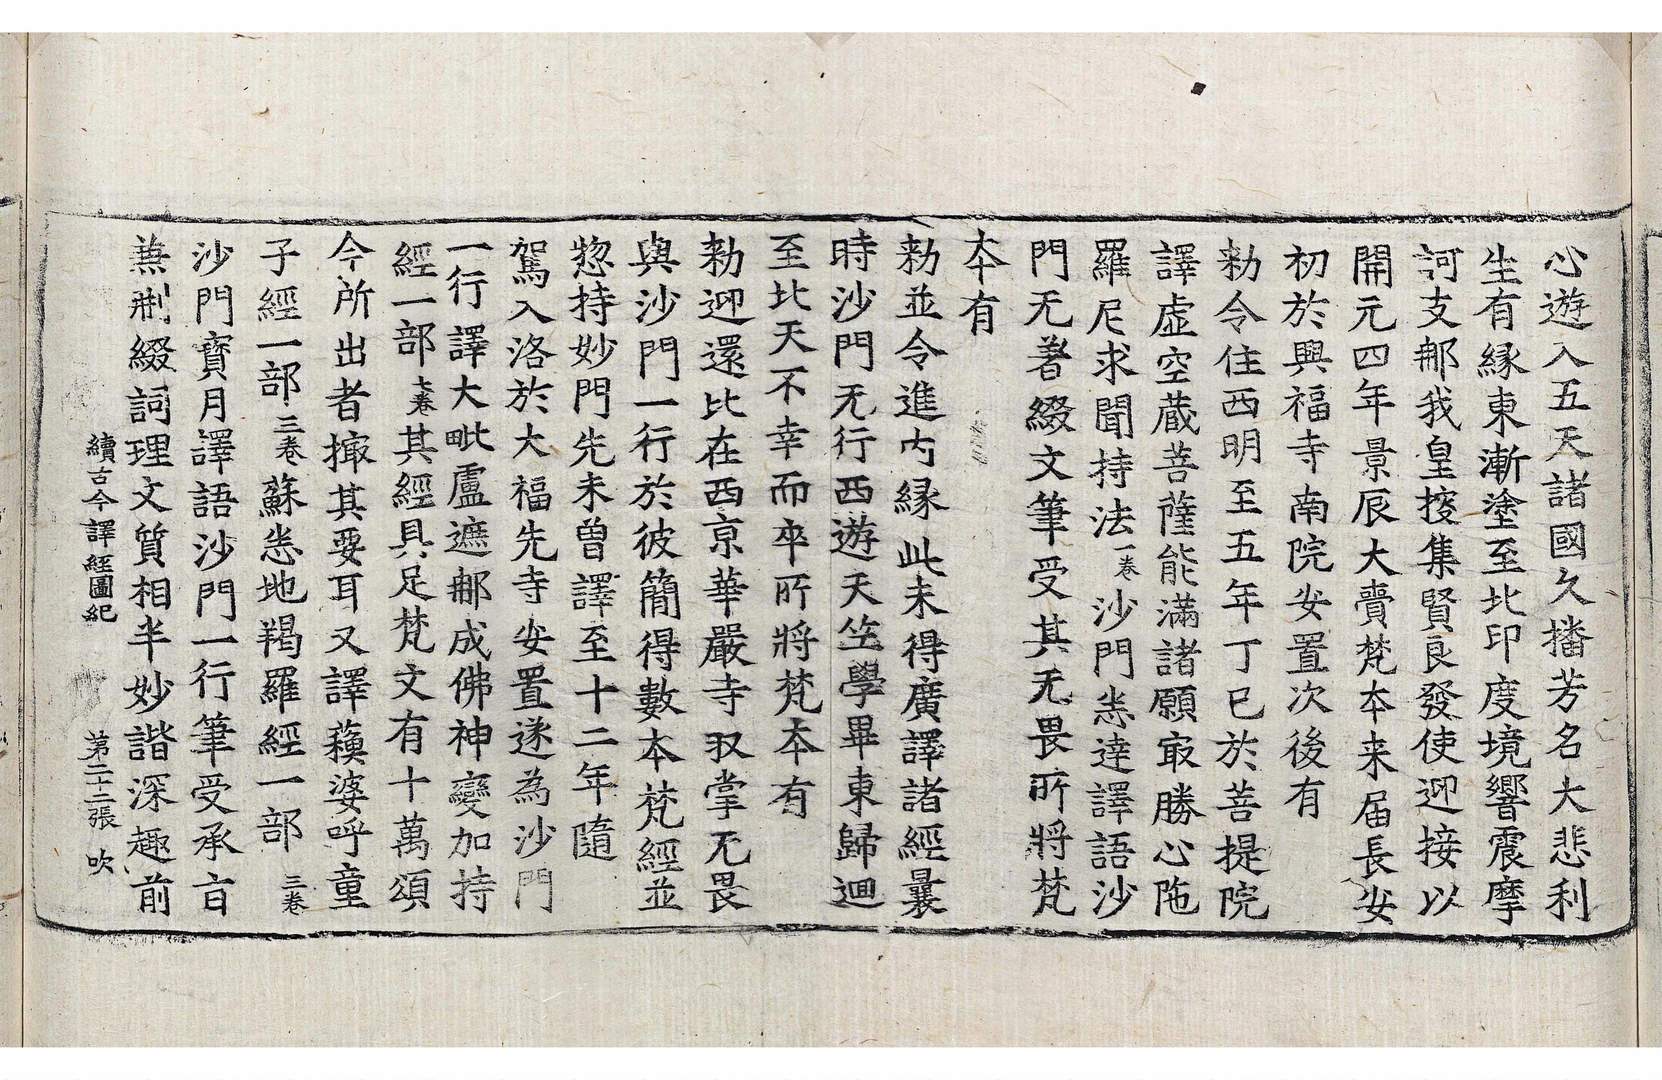 心遊入五天諸國久播芳名大悲利
生有緣東漸塗至北印度境響震摩
訶支那我皇搜集賢良發使迎接以
開元四年景辰大賷梵本来届長安
初於興福寺南院安置次後有
勑令住西明至五年丁巳於菩提院
譯虛空藏菩薩能滿諸願㝡勝心陁
羅尼求聞持法一卷沙門悉達譯語沙
門无著綴文筆受其无畏所將梵
本有
勑並令進內緣此未得廣譯諸經曩
時沙門无行西遊天竺學畢東歸迴
至北天不幸而卒所將梵本有
勑迎還比在西京華嚴寺収掌无畏
與沙門一行於彼簡得數本梵經並
惣持妙門先未曾譯至十二年隨
駕入洛於大福先寺安置遂為沙門
一行譯大毗盧遮那成佛神變加持
經一部七卷其經具足梵文有十萬頌
今所出者撮其要耳又譯蘇婆呼童
子經一部三卷蘇悉地羯羅經一部三卷
沙門寳月譯語沙門一行筆受承旨
兼刪綴詞理文質相半妙諧深趣前
續古今譯經圖紀 第二十二張 吹